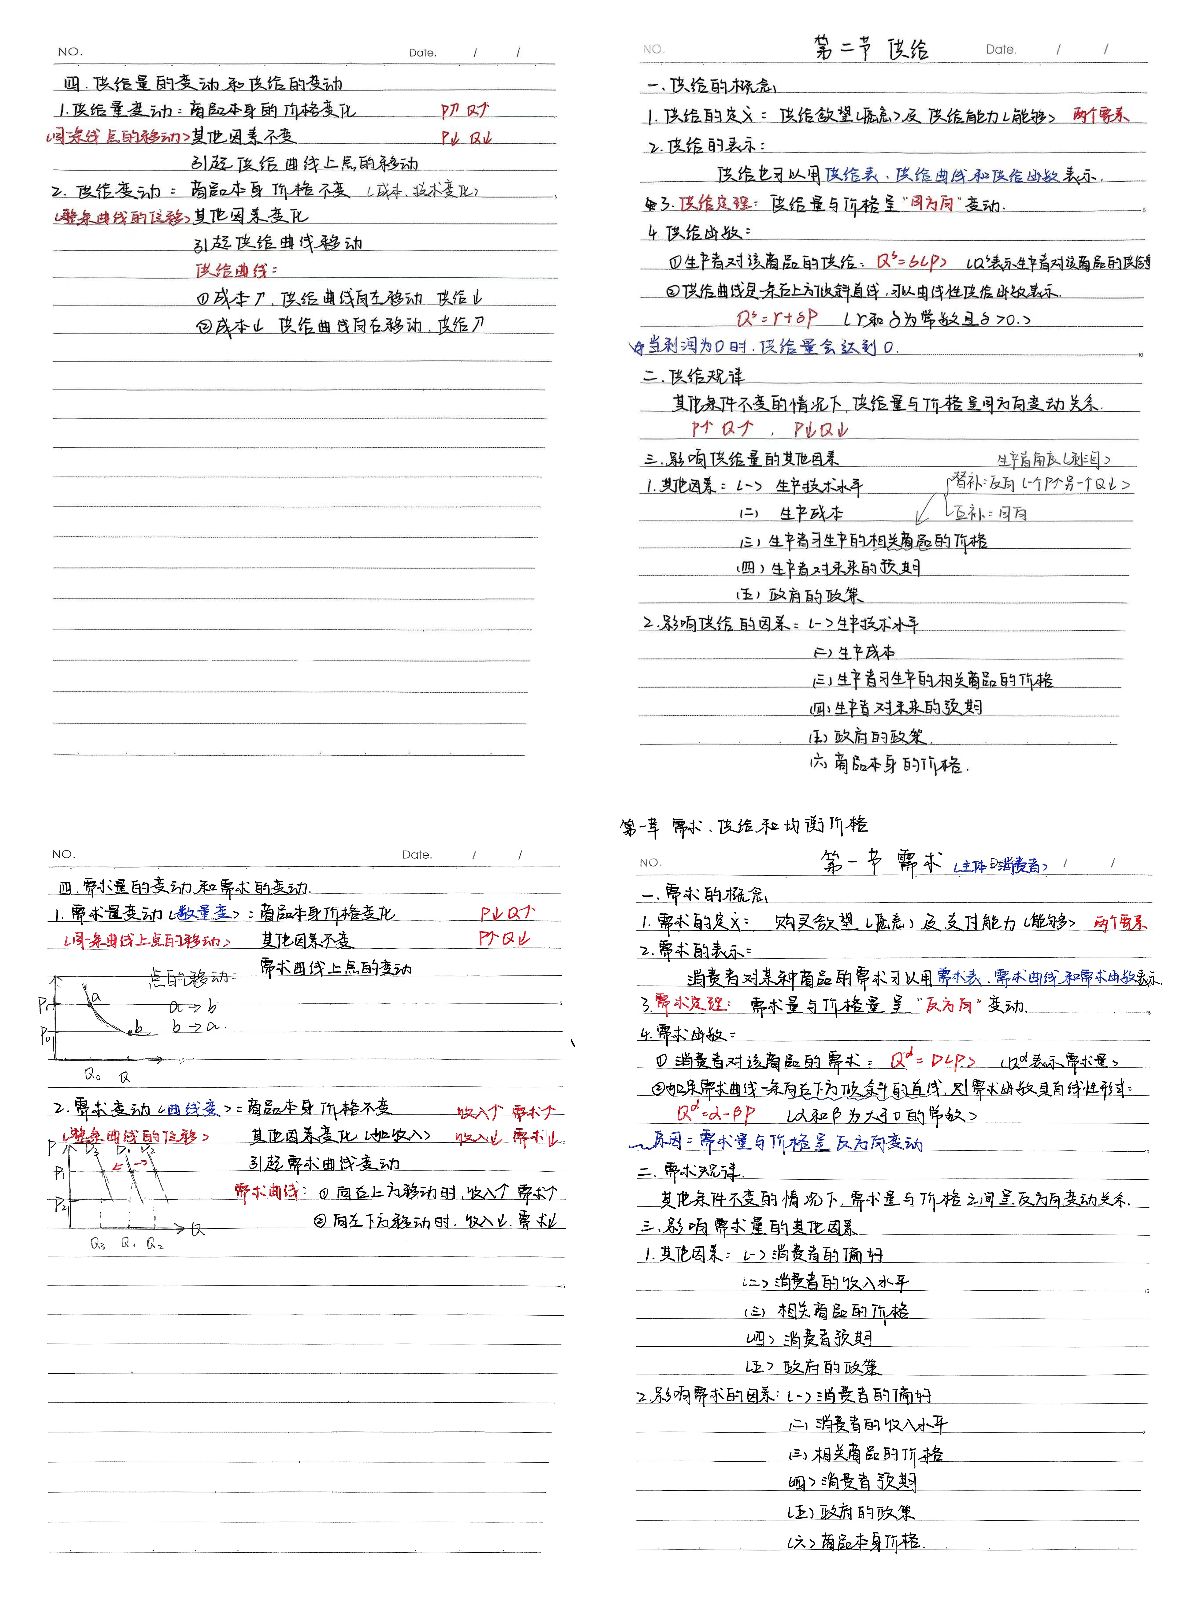 NO. Date. / /
四. 供给量的变动和供给的变动
1. 供给量变动: 商品本身的价格变化 P↑ Q↑
(同一条线点的移动) 其他因素不变 P↓ Q↓
引起供给曲线上点的移动
2. 供给变动: 商品本身价格不变 (成本、技术变化)
(整条曲线的位移) 其他因素变化
引起供给曲线移动
供给曲线:
①成本↑, 供给曲线向左移动 供给↓
②成本↓ 供给曲线向右移动, 供给↑
NO. 第二节 供给 Date. / /
一. 供给的概念
1. 供给的定义: 供给欲望(愿意)及供给能力(能够) 两个要素
2. 供给的表示:
供给也可以用供给表、供给曲线和供给函数表示.
3. 供给定理: 供给量与价格呈"同方向"变动.
4. 供给函数:
①生产者对该商品的供给: Qˢ=S(P) (Qˢ表示生产者对该商品的供给量
②供给曲线是一条右上方倾斜直线,可以由线性供给函数表示.
Qˢ=γ+δP (γ和δ为常数且δ>0.)
☆当利润为0时,供给量会达到0.
二. 供给规律
其他条件不变的情况下,供给量与价格呈同方向变动关系.
P↑ Q↑ , P↓Q↓
三. 影响供给量的其他因素 生产者角度(利润)
1. 其他因素: (一) 生产技术水平 替补:反向(一个P↑另一个Q↓)
(二) 生产成本 互补:同向
(三) 生产者可生产的相关商品的价格
(四) 生产者对未来的预期
(五) 政府的政策
2. 影响供给的因素: (一)生产技术水平
(二)生产成本
(三)生产者可生产的相关商品的价格
(四)生产者对未来的预期
(五)政府的政策
(六)商品本身的价格.
NO. Date. / /
四. 需求量的变动和需求的变动.
1. 需求量变动(数量变): 商品本身价格变化 P↓Q↑
(同一条曲线上点的移动) 其他因素不变 P↑Q↓
点的移动: 需求曲线上点的变动
P₁ a a→b
P₀ b b→a.
Q₀ Q
2. 需求变动(曲线变): 商品本身价格不变 收入↑ 需求↑
(整条曲线的位移) 其他因素变化(如收入) 收入↓ 需求↓
P
P₁ 引起需求曲线变动
P₂ 需求曲线: ①向右上方移动时,收入↑ 需求↑
②向左下方移动时,收入↓ 需求↓
Q
Q₃ Q₁ Q₂
第一章 需求、供给和均衡价格
NO. 第一节 需求 (主体:消费者) / /
一. 需求的概念
1. 需求的定义: 购买欲望(愿意)及支付能力(能够) 两个要素
2. 需求的表示:
消费者对某种商品的需求可以用需求表、需求曲线和需求函数表示.
3. 需求定理: 需求量与价格量呈"反方向"变动.
4. 需求函数:
①消费者对该商品的需求: Qᵈ=D(P) (Qᵈ表示需求量)
②如果需求曲线一条向右下方倾斜的直线,则需求函数具有线性形式:
Qᵈ=α-βP (α和β为大于0的常数)
原因:需求量与价格呈反方向变动
二. 需求规律
其他条件不变的情况下,需求量与价格之间呈反方向变动关系.
三. 影响需求量的其他因素
1. 其他因素: (一)消费者的偏好
(二)消费者的收入水平
(三)相关商品的价格
(四)消费者预期
(五)政府的政策
2. 影响需求的因素: (一)消费者的偏好
(二)消费者的收入水平
(三)相关商品的价格
(四)消费者预期
(五)政府的政策
(六)商品本身价格.